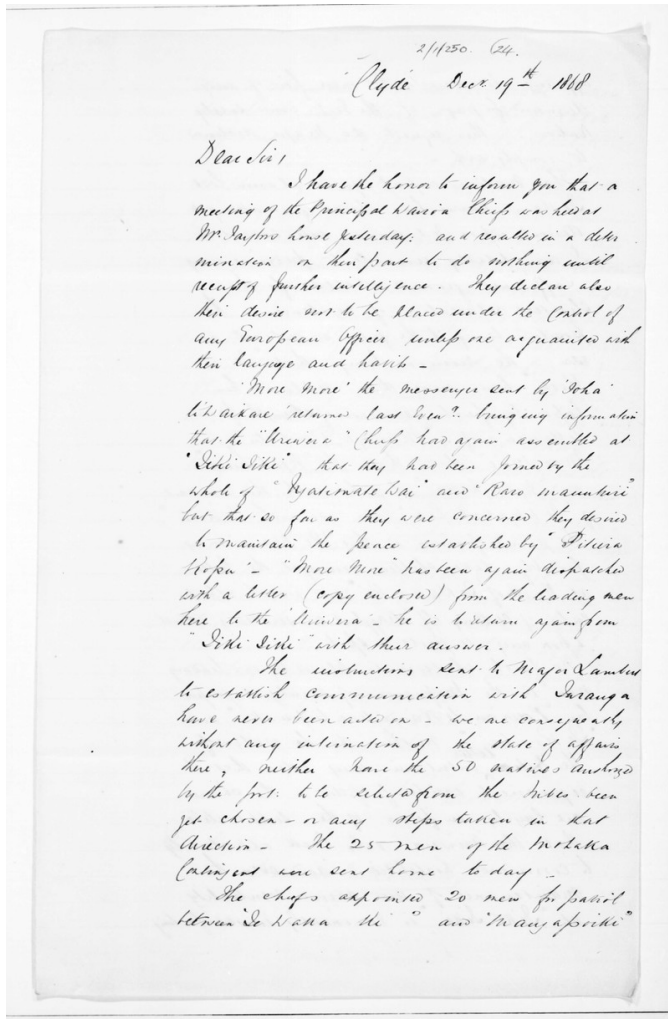 2/1/250. (24.
Clyde Decr. 19th 1868
Dear Sir,
I have the honor to inform you that a
meeting of the Principal Wairoa Chiefs was held at
Mr. Taylors house yesterday: and resulted in a deter
mination on their part to do nothing until
receipt of further intelligence. They declare also
their desire not to be placed under the control of
any European Officer unless one acquainted with
their language and habits -
"More More" the messenger sent by
te Waikare returned last Even?. bringing information
that the "Uriwera" Chiefs had again assembled at
"Tiki Tiki" that they had been joined by the
whole of and
but that so far as they were concerned they desired
to maintain the peace established by "Pitiera
Kopu" - "More More" has been again dispatched
with a letter (copy enclosed) from the leading men
here to the "Uriwera" - he is to return again from
"Tiki Tiki" with their answer.
The instructions sent to Major Lambert
to establish communication with Turanga
have never been acted on - we are consequently
without any intimation of the state of affairs
there, neither have the 50 natives authorized
by the Govt: to be selected from the tribes been
yet chosen - or any steps taken in that
direction - The 25 men of the Mohaka
Contingent were sent home to day -
The chiefs appointed 20 men for patrol
between and "Mangapoiki"